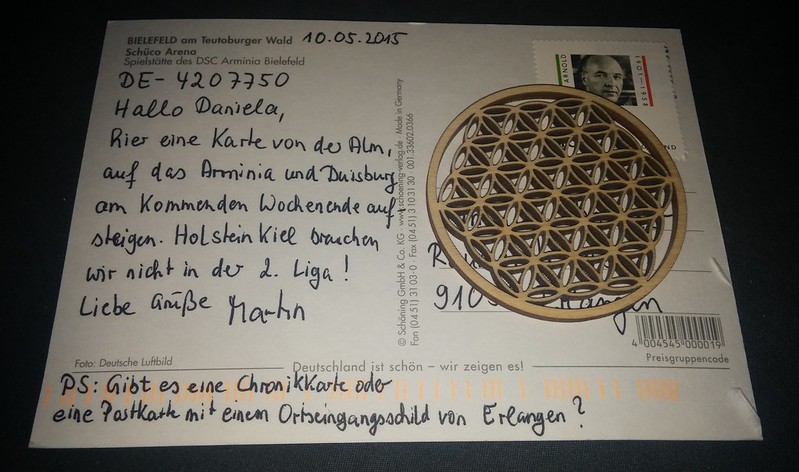 BIELEFELD am Teutoburger Wald 10.05.2015
Schüco Arena
Spielstätte des DSC Arminia Bielefeld
DE-4207750
Hallo Daniela,
Hier eine Karte von der Alm,
auf das Arminia und Duisburg
am Kommenden Wochenende auf-
steigen. Holstein Kiel brauchen
wir nicht in der 2. Liga!
Liebe Grüße Martin
Foto: Deutsche Luftbild
Deutschland ist schön – wir zeigen es!
PS: Gibt es eine Chronikkarte oder
eine Postkarte mit einem Ortseingangsschild von Erlangen?
© Schöning GmbH & Co. KG · www.schoening-verlag.de · Made in Germany
Fon (04 51) 31 03-0 · Fax (04 51) 3 10 31 30 · 001.33602.0366
ARNOLD
1901–1953
910
4 004545 000019
Preisgruppencode